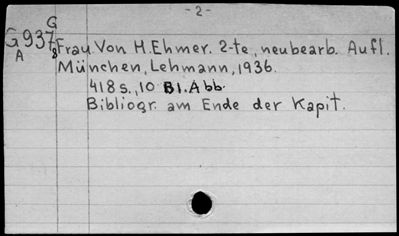 - 2 -
G
G937
A 8
Frau. Von H. Ehmer. 2-te, neubearb. Aufl.
München, Lehmann, 1936.
418 s., 10 Bl. Abb.
Bibliogr. am Ende der Kapit.